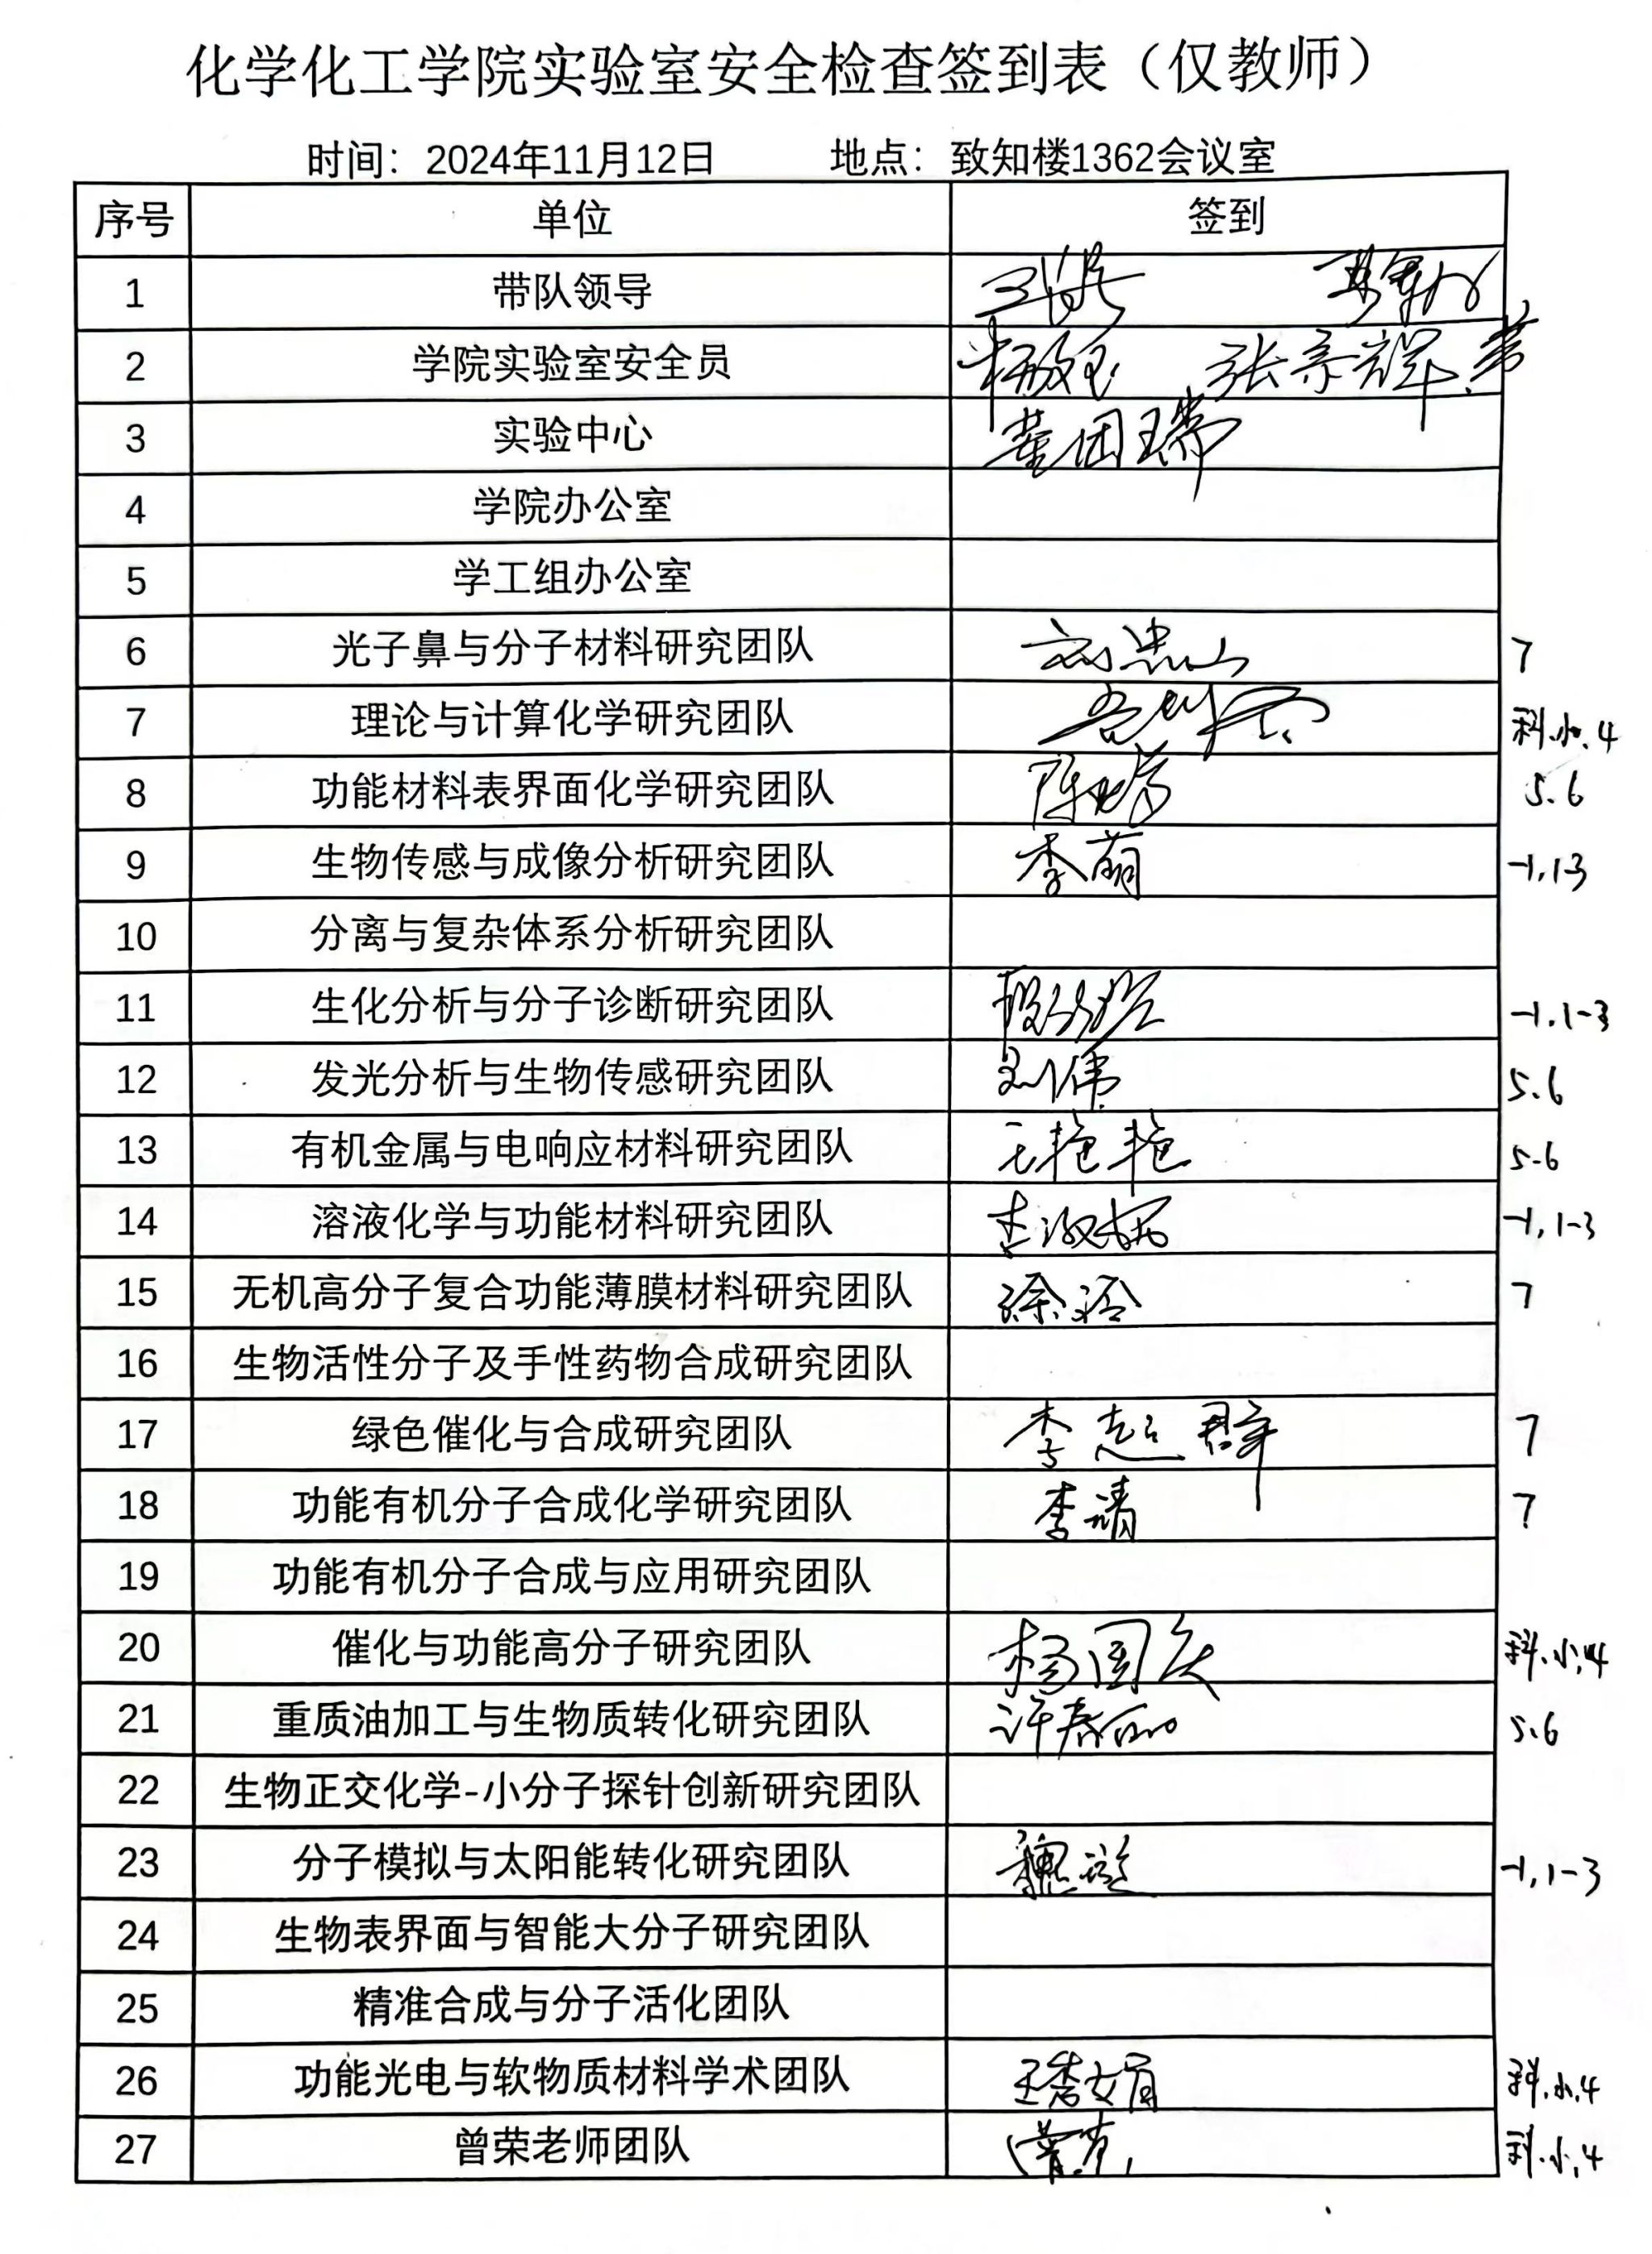 化学化工学院实验室安全检查签到表（仅教师）
时间：2024年11月12日 地点：致知楼1362会议室
序号 单位 签到
1 带队领导
2 学院实验室安全员 张宗辉
3 实验中心 董团瑞
4 学院办公室
5 学工组办公室
6 光子鼻与分子材料研究团队 刘忠山 7
7 理论与计算化学研究团队 科.小.4
8 功能材料表界面化学研究团队 5.6
9 生物传感与成像分析研究团队 李萌 -1,1-3
10 分离与复杂体系分析研究团队
11 生化分析与分子诊断研究团队 -1.1-3
12 发光分析与生物传感研究团队 刘伟 5.6
13 有机金属与电响应材料研究团队 王艳艳 5-6
14 溶液化学与功能材料研究团队 李淑妮 -1,1-3
15 无机高分子复合功能薄膜材料研究团队 徐玲 7
16 生物活性分子及手性药物合成研究团队
17 绿色催化与合成研究团队 李超群 7
18 功能有机分子合成化学研究团队 李靖 7
19 功能有机分子合成与应用研究团队
20 催化与功能高分子研究团队 杨国庆 科.小.4
21 重质油加工与生物质转化研究团队 许春丽 5.6
22 生物正交化学-小分子探针创新研究团队
23 分子模拟与太阳能转化研究团队 -1,1-3
24 生物表界面与智能大分子研究团队
25 精准合成与分子活化团队
26 功能光电与软物质材料学术团队 王秀娟 科.小.4
27 曾荣老师团队 科.小.4